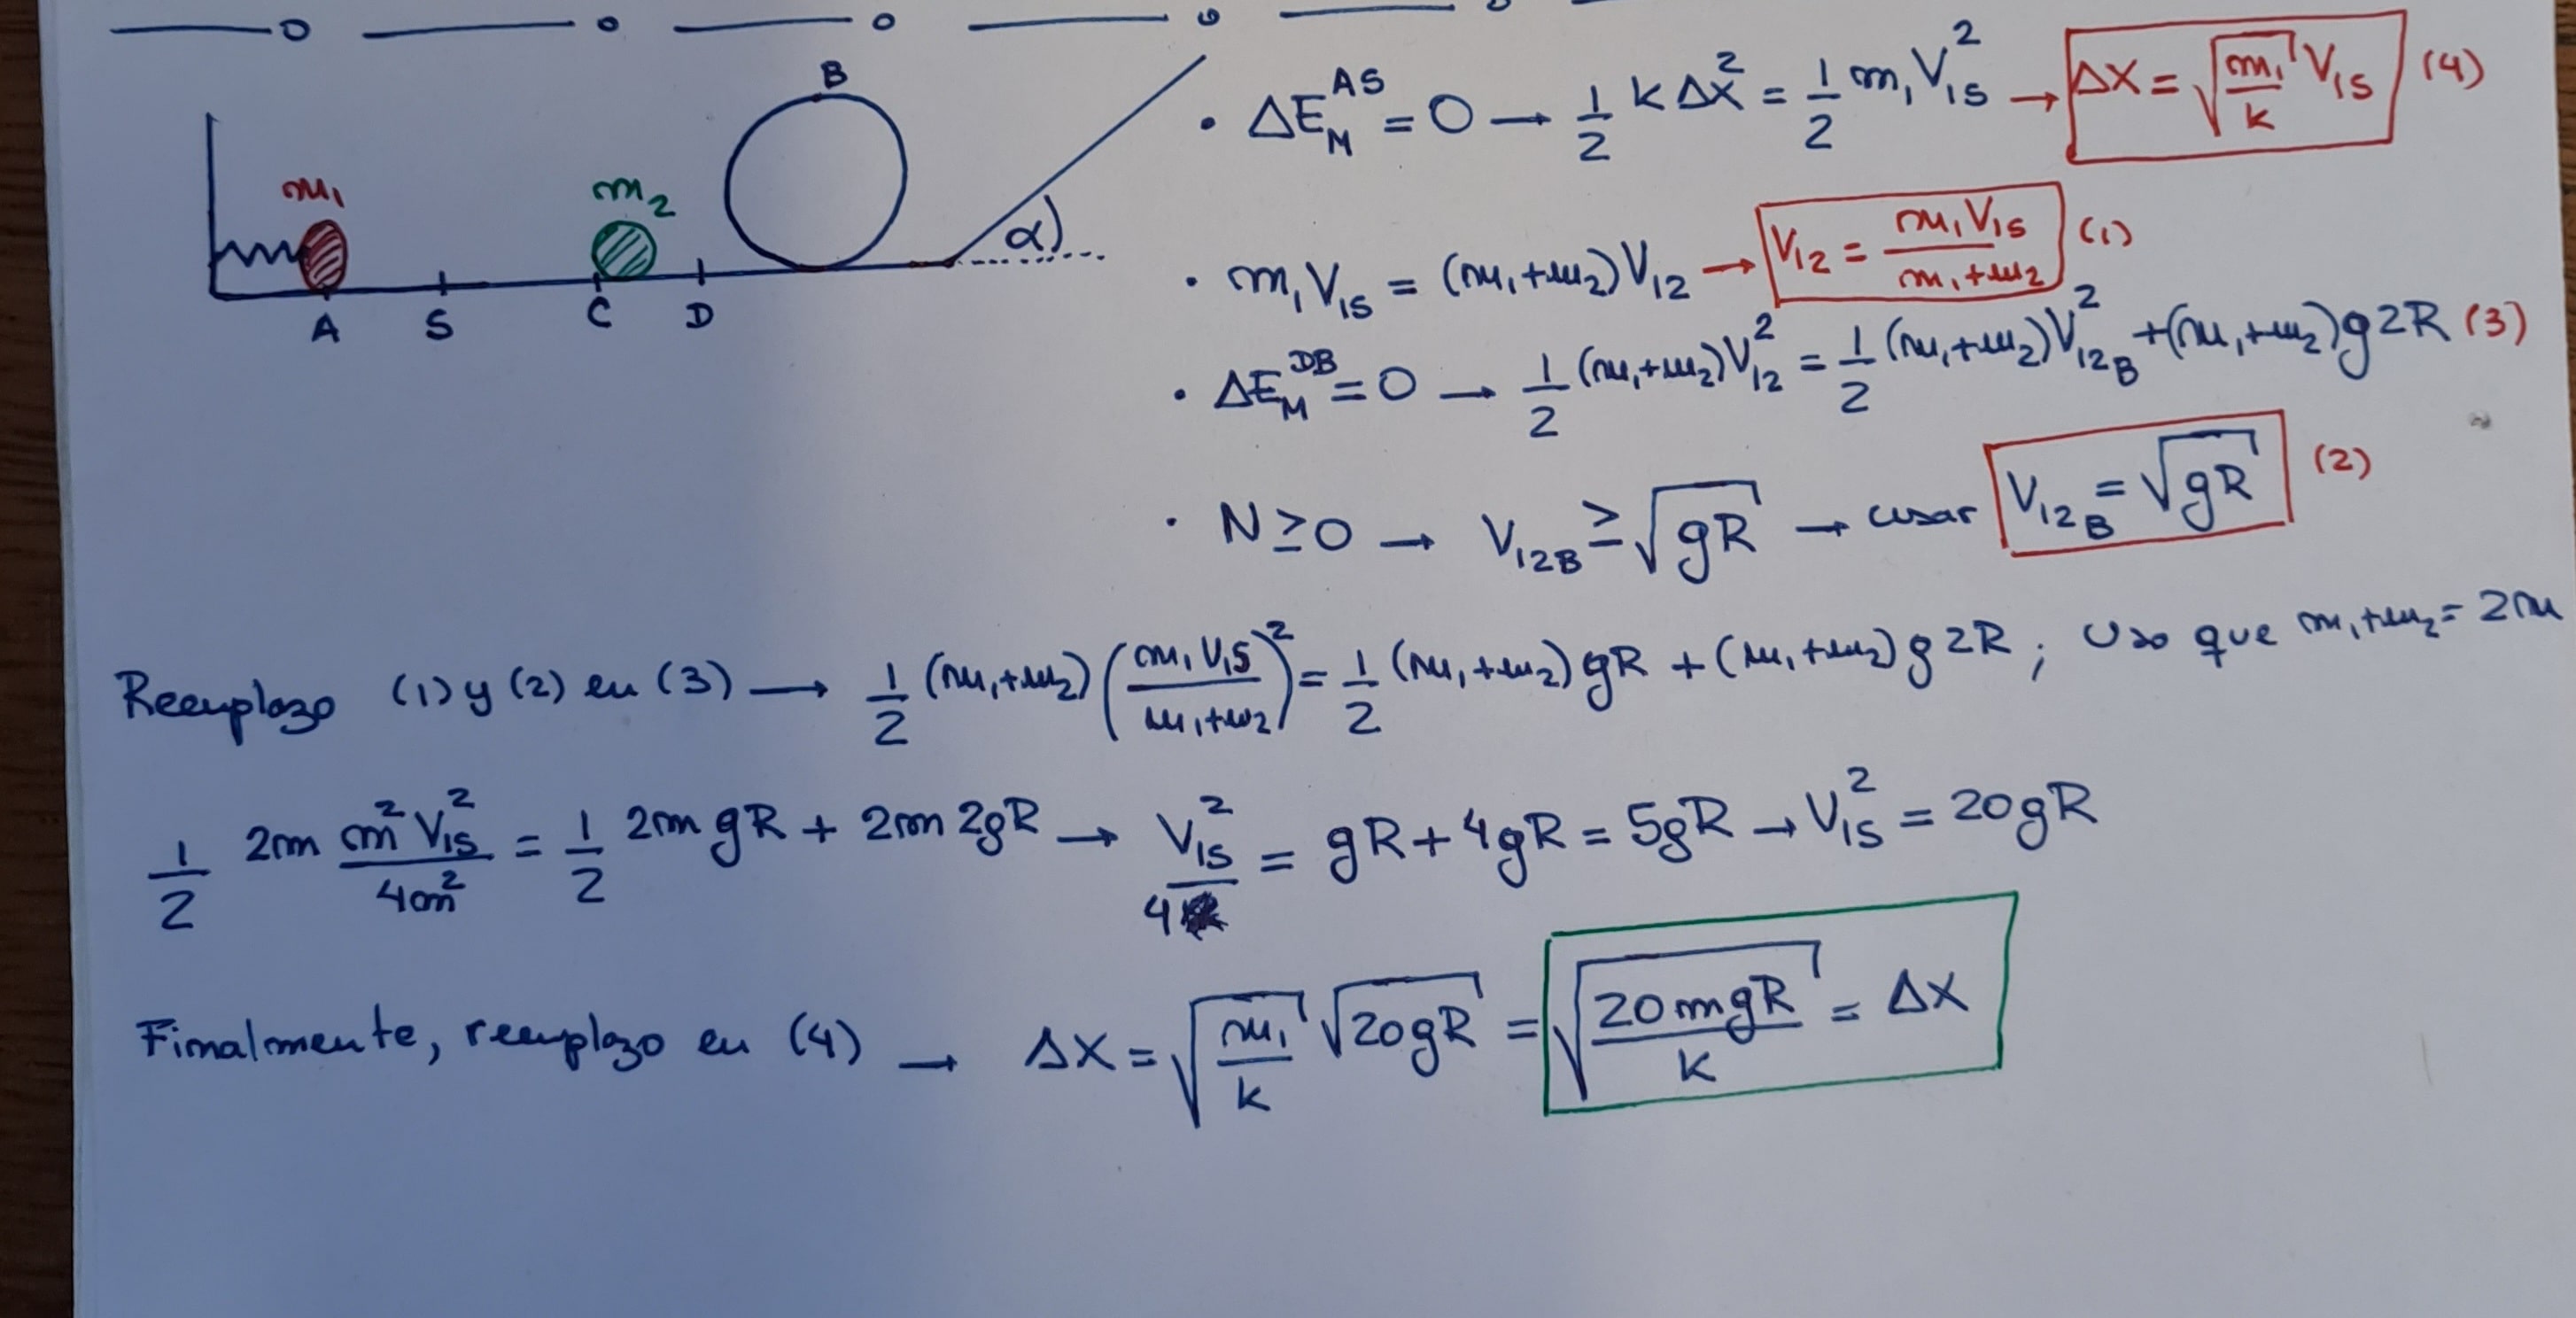 B
m₁
m₂
α
A S C D
• ΔE_M^{AS} = 0 → 1/2 k Δx² = 1/2 m₁ V₁S² → Δx = √(m₁/k) V₁S (4)
• m₁ V₁S = (m₁+m₂) V₁₂ → V₁₂ = m₁ V₁S / (m₁+m₂) (1)
• ΔE_M^{DB} = 0 → 1/2 (m₁+m₂) V₁₂² = 1/2 (m₁+m₂) V₁₂B² + (m₁+m₂) g 2R (3)
• N ≥ 0 → V₁₂B ≥ √(gR) → usar V₁₂B = √(gR) (2)
Reemplazo (1) y (2) en (3) → 1/2 (m₁+m₂) (m₁ V₁S / (m₁+m₂))² = 1/2 (m₁+m₂) gR + (m₁+m₂) g 2R ; Uso que m₁+m₂ = 2m
1/2 2m m² V₁S² / 4m² = 1/2 2m gR + 2m 2gR → V₁S² / 4 = gR + 4gR = 5gR → V₁S² = 20gR
Finalmente, reemplazo en (4) → Δx = √(m₁/k) √(20gR) = √(20mgR/k) = Δx